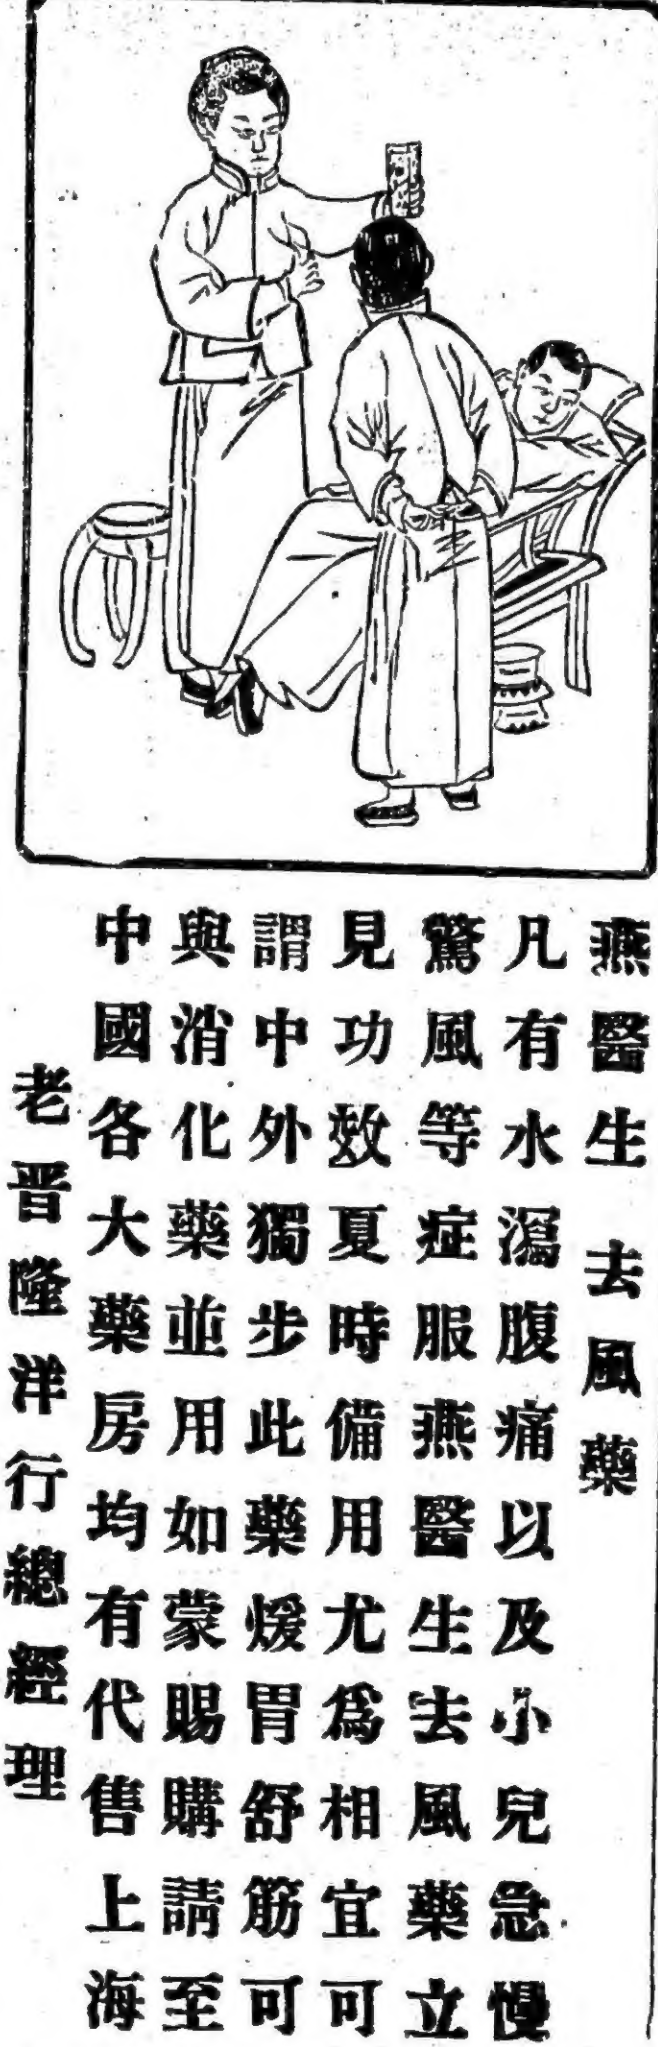 燕醫生 去風藥
凡有水瀉腹痛以及小兒急慢
驚風等症服燕醫生去風藥立
見功效夏時備用尤爲相宜可
謂中外獨步此藥煖胃舒筋可
與消化藥並用如蒙賜購請至
中國各大藥房均有代售上海
老晋隆洋行總經理